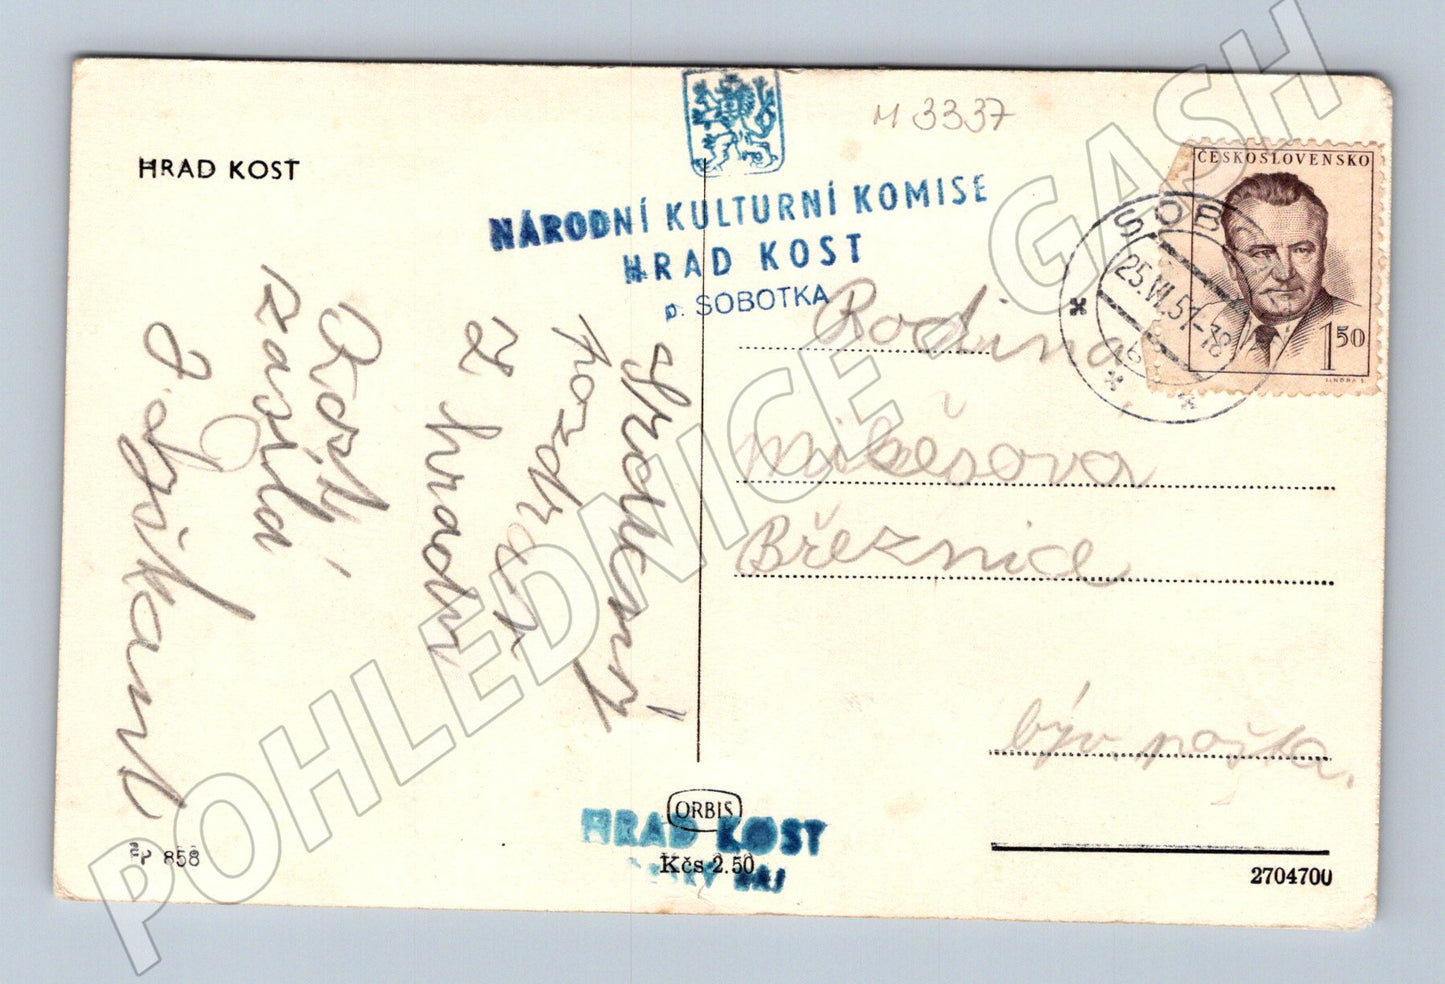 HRAD KOST
M 3337
NÁRODNÍ KULTURNÍ KOMISE
HRAD KOST
p. SOBOTKA
ČESKOSLOVENSKO
1 50
SOBO
25.VI.51-18
Srdečný
pozdrav
z hradu
Kost,
zasílá
J.
Rodina
Mikešova
Březnice
býv. pošta.
ORBIS
HRAD KOST
Kčs 2.50
RÁJ
858
2704700
POHLEDNICE - GASH